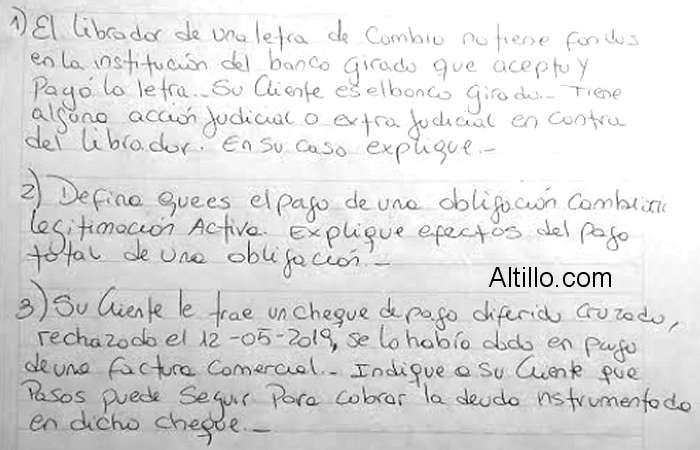 1) El librador de una letra de Cambio no tiene fondos
en la institución del banco girado que acepto y
Pagó la letra.- Su Cliente es el banco girado.- Tiene
alguna acción judicial o extra judicial en contra
del librador. En su caso explique.-
2) Defina que es el pago de una obligación Cambiaria
Legitimación Activa. Explique efectos del Pago
total de una obligación.-
Altillo.com
3) Su Cliente le trae un cheque de pago diferido cruzado,
rechazado el 12-05-2019, se lo había dado en pago
de una factura Comercial.- Indique a su Cliente que
Pasos puede Seguir Para cobrar la deuda nstrumentada
en dicho cheque.-